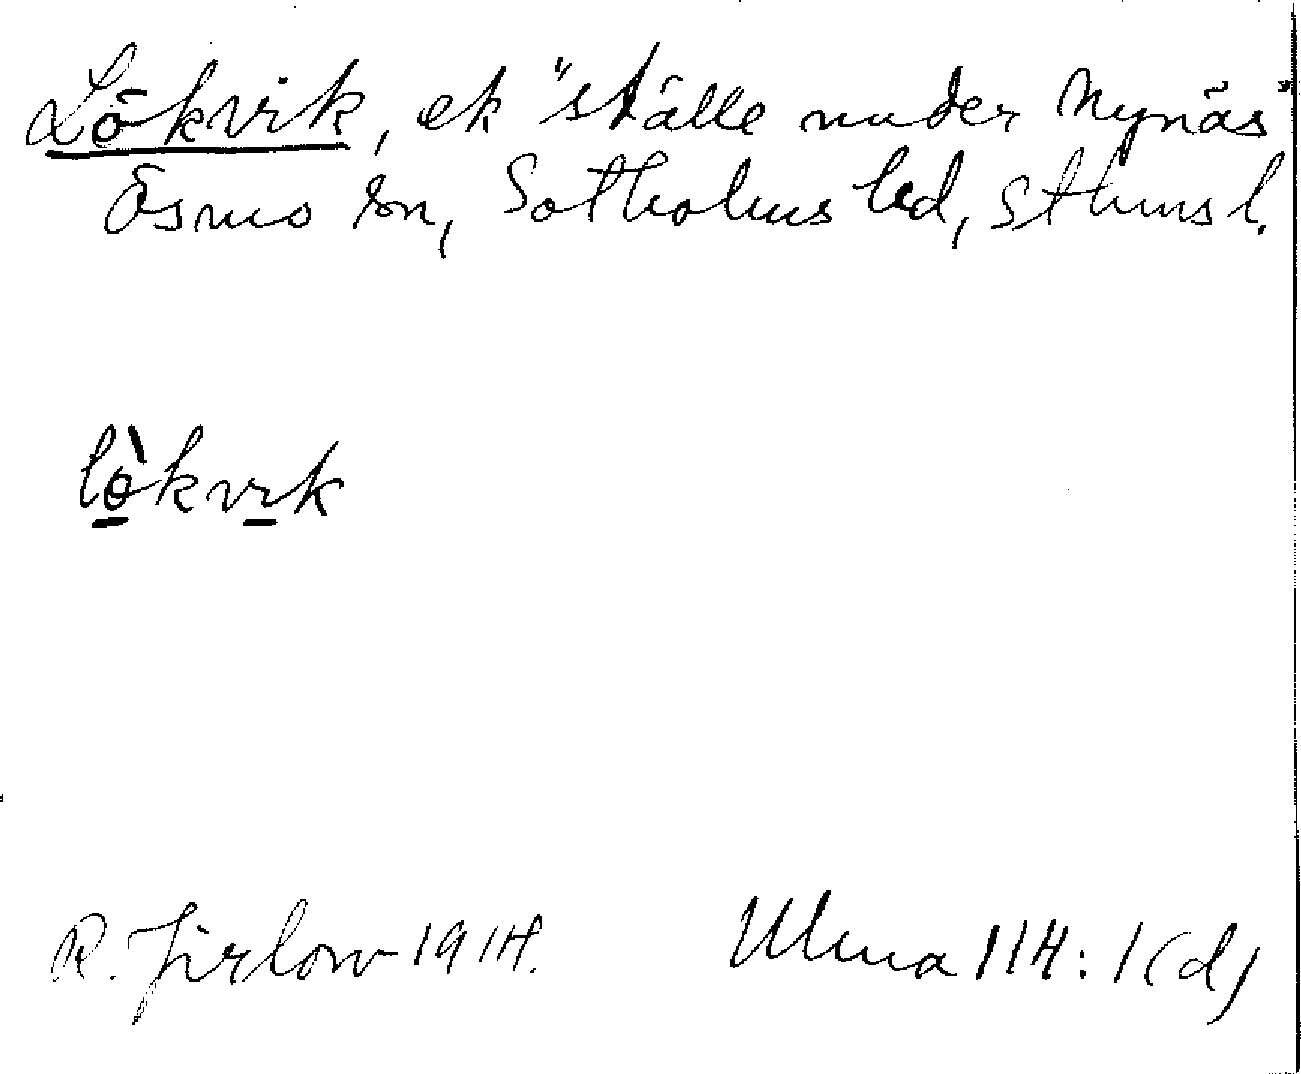 Lökvik, ek "ställe under Nynäs"
Ösmo sn, Sotholms hd, Sthms l.
lö̀kvik
R. Jirlow 1914.
Uluma 114:1(d)